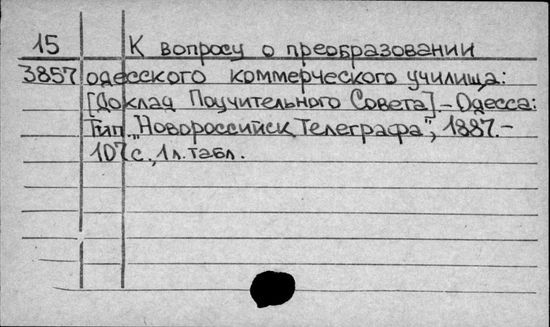 15 К вопросу о преобразовании
3857 одесского коммерческого училища:
[Доклад Поучительного Совета].-Одесса:
Тип. "Новороссийск. Телеграфа", 1887.-
107 с., 1 л. табл.